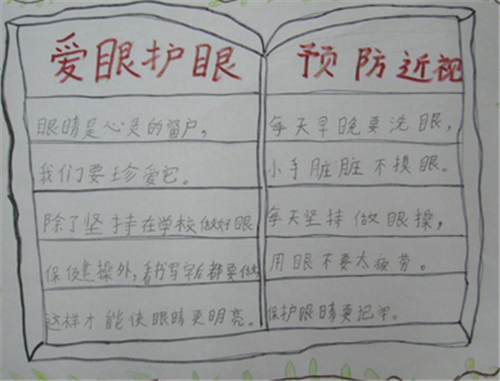 爱眼护眼
眼睛是心灵的窗户，
我们要珍爱它。
除了坚持在学校做好眼
保健操外，看书写字后都要做
这样才能使眼睛更明亮。
预防近视
每天早晚要洗眼，
小手脏脏不摸眼。
每天坚持做眼操，
用眼不要太疲劳。
保护眼睛要记牢。